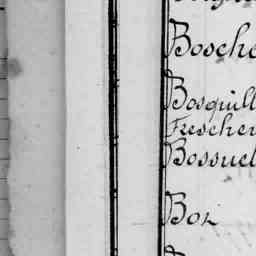 Bosche
Bosquill
Frescher
Bossuel
Boz